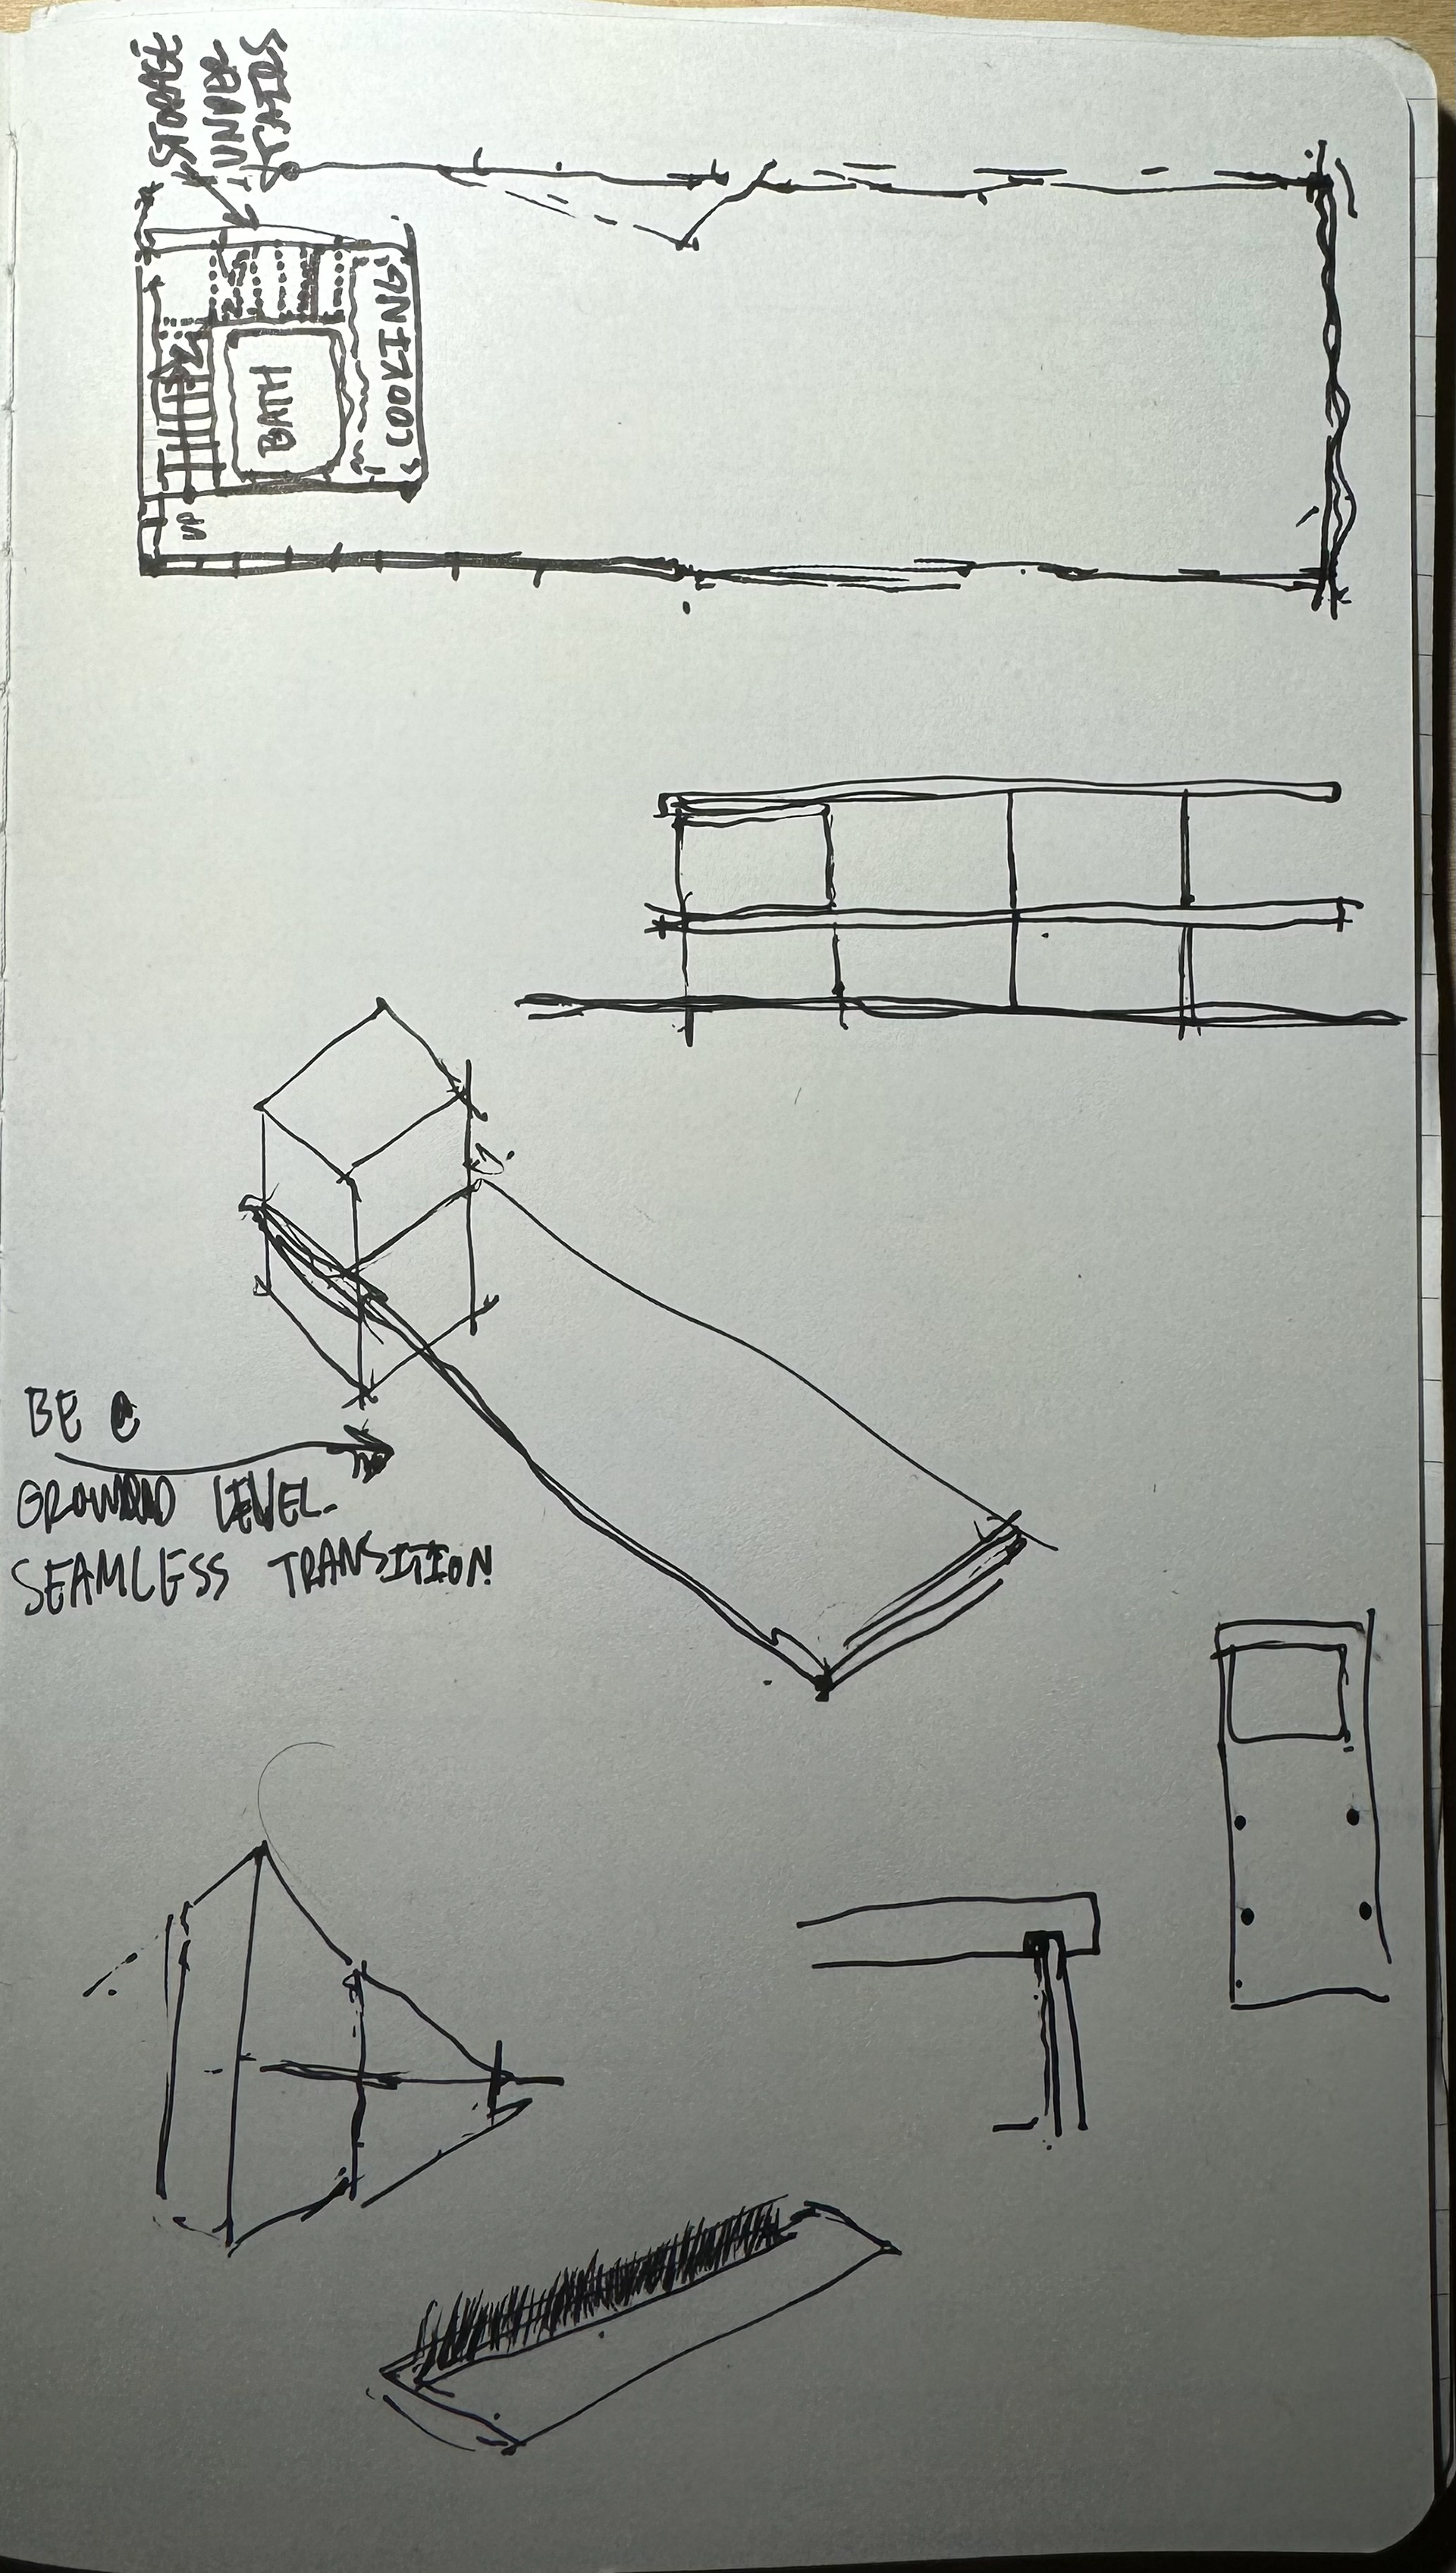 STORAGE
UNDER
STAIRS
COOKING
BATH
UP
BE @
GROUND LEVEL.
SEAMLESS TRANSITION